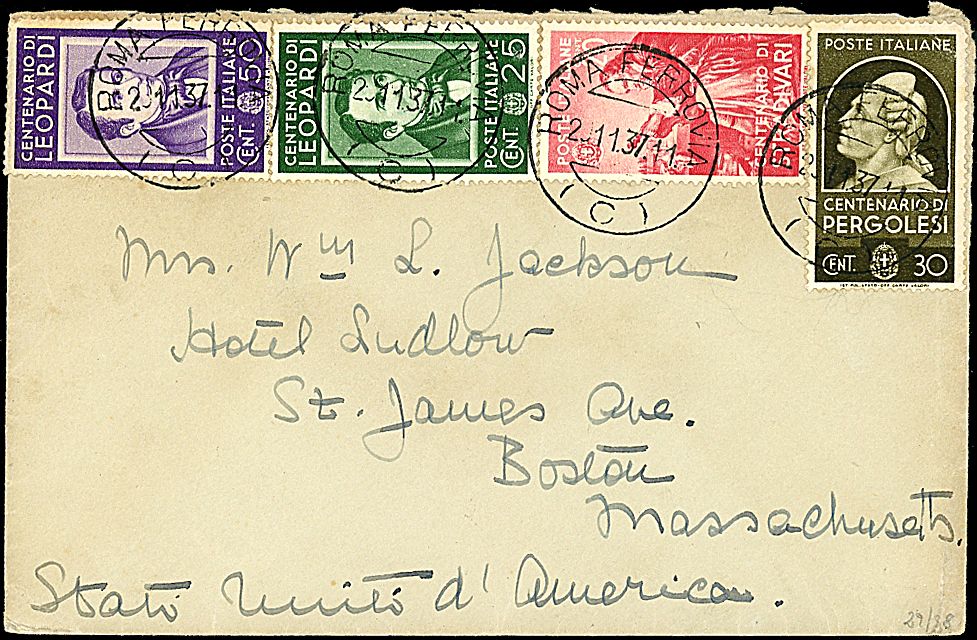 CENTENARIO DI
LEOPARDI
POSTE ITALIANE
CENT. 50
CENTENARIO DI
LEOPARDI
POSTE ITALIANE
CENT. 25
POSTE
CENTENARIO DI
POSTE ITALIANE
CENTENARIO DI
PERGOLESI
CENT. 30
ROMA FERROVIA
11.37
ROMA FERROVIA
11.37
ROMA FERROVIA
2.11.37.11
(C)
ROMA FERROVIA
11.37
Mrs. Wm L. Jackson
Hotel Ludlow
St. James Ave.
Boston
Massachusetts.
Stati Uniti d'America.
29/38